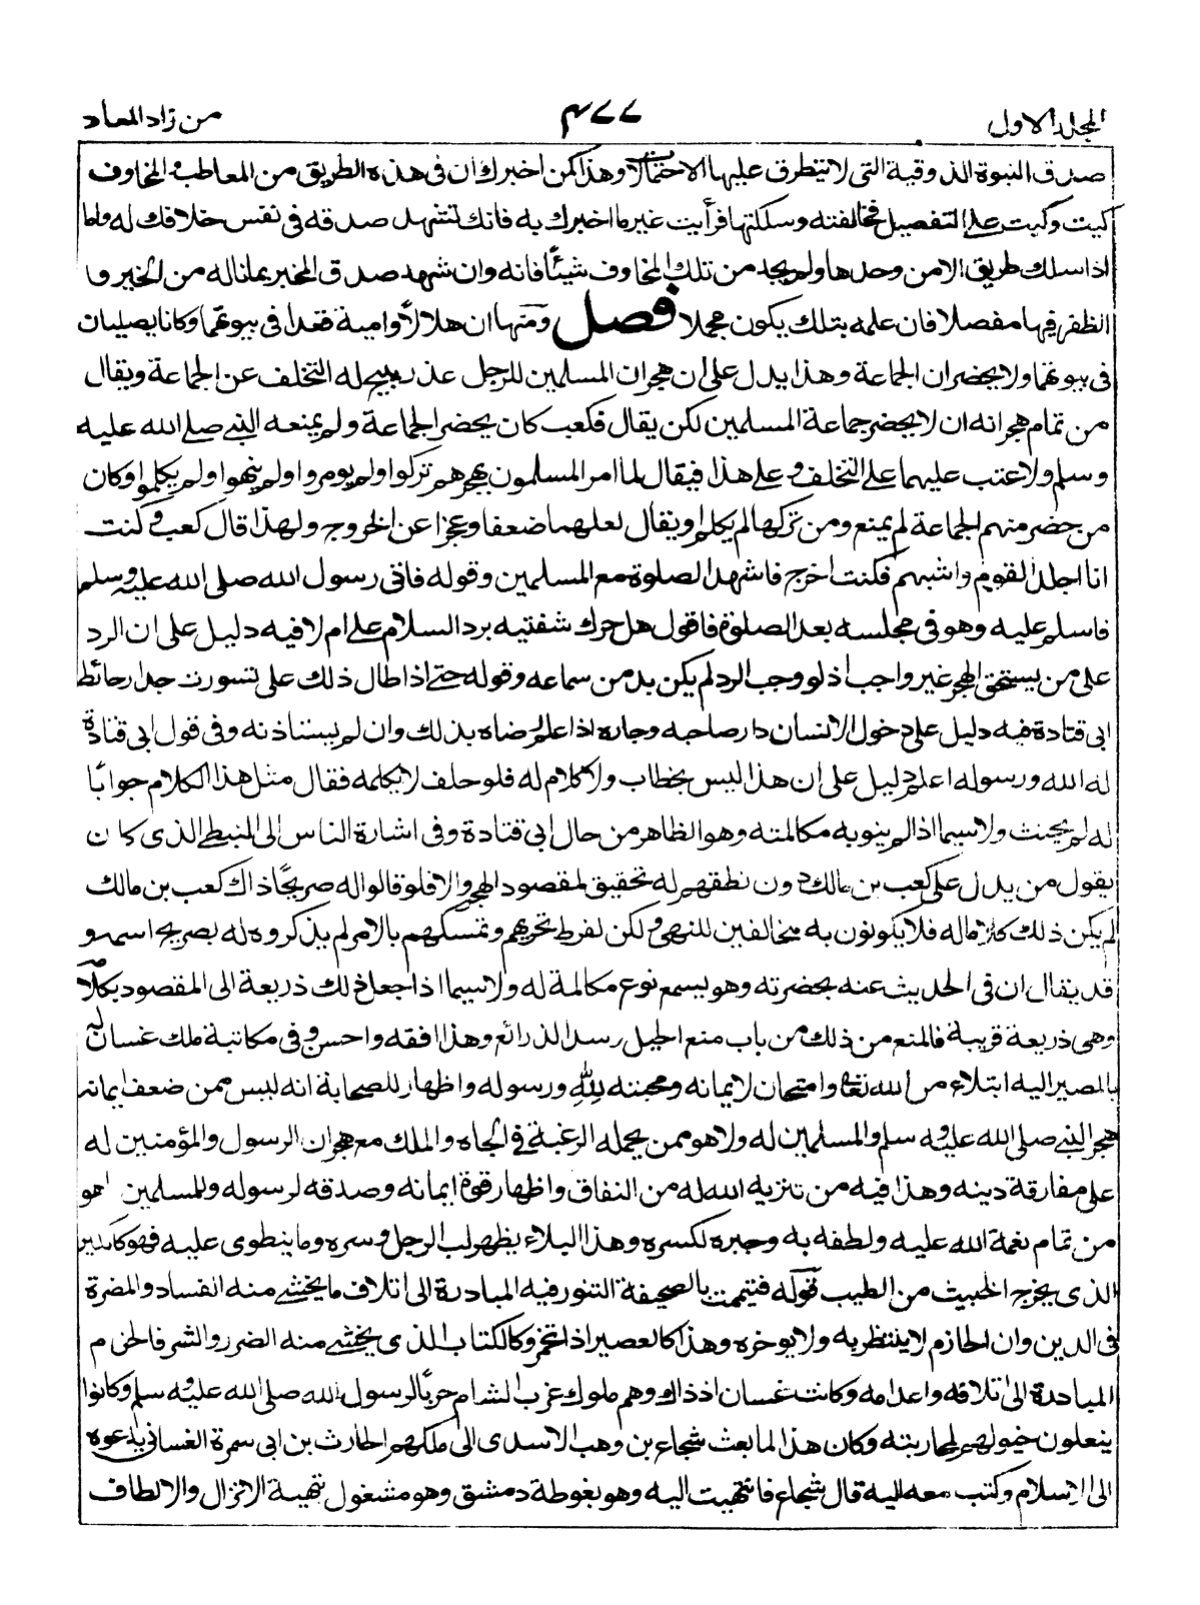 المجلد الاول ۴۷۷ من زاد المعاد
صدق النبوة الذوقية التى لا يتطرق عليها الاحتمالات وهذا كمن اخبرك ان فى هذه الطريق من المعاطب والمخاوف
كيت وكيت على التفصيل فخالفته وسلكتها فرأيت غير ما اخبرك به فانك تشهد صدقه فى نفس خلافك له واما
اذا سلك طريق الامن وحدها ولم يجد من تلك المخاوف شيئًا فانه وان شهد صدق المخبر بما ناله من الخير وا
الظفر فيها مفصلا فان علمه بتلك يكون مجملا فصل ومنها ان هلالًا وامية قعدا فى بيوتهما وكانا يصليان
فى بيوتهما ولا يحضران الجماعة وهذا يدل على ان هجران المسلمين للرجل عذر يبيح له التخلف عن الجماعة ويقال
من تمام هجرانه ان لا يحضر جماعة المسلمين لكن يقال فكعب كان يحضر الجماعة ولم يمنعه النبى صلى الله عليه
وسلم ولا عتب عليهما على التخلف وعلى هذا فيقال لما امر المسلمون بهجرهم تركوا ولم يومروا ولم ينهوا ولم يكلموا وكان
من حضر منهم الجماعة لم يمنع ومن تركها لم يكلم او يقال لعلهما ضعفا وعجزا عن الخروج ولهذا قال كعب وكنت
انا اجلد القوم واشبهم فكنت اخرج فاشهد الصلوة مع المسلمين وقوله فاتى رسول الله صلى الله عليه وسلم
فاسلم عليه وهو فى مجلسه بعد الصلوة فاقول هل حرك شفتيه برد السلام على ام لا فيه دليل على ان الرد
على من يستحق الهجر غير واجب اذ لو وجب الرد لم يكن بد من سماعه وقوله حتى اذا طال ذلك على تسورت جدار حائط
ابى قتادة فيه دليل على دخول الانسان دار صاحبه وجاره اذا علم رضاه بذلك وان لم يستاذنه وفى قول ابى قتادة
له الله ورسوله اعلم دليل على ان هذا ليس بخطاب ولا كلام له فلو حلف لا يكلمه فقال مثل هذا الكلام جوابًا
له لم يحنث ولا سيما اذا لم ينو به مكالمته وهو الظاهر من حال ابى قتادة وفى اشارة الناس الى النبطى الذى كان
يقول من يدل على كعب بن مالك دون نطقهم له تحقيق لمقصود الهجر والا فلو قالوا له صريحًا ذاك كعب بن مالك
لم يكن ذلك كلاما له فلا يكونون به مخالفين للنهى ولكن لفرط تحريهم وتمسكهم بالامر لم يذكروه له بصريح اسمه و
قد يقال ان فى الحديث عنه بحضرته وهو يسمع نوع مكالمة له ولا سيما اذا جعل ذلك ذريعة الى المقصود بكلامه
وهى ذريعة قريبة فالمنع من ذلك من باب منع الحيل وسد الذرائع وهذا افقه واحسن وفى مكاتبة ملك غسان له
بالمصير اليه ابتلاء من الله تعالى وامتحان لايمانه ومحبته لله ورسوله واظهار للصحابة انه ليس ممن ضعف ايمانه
هجر النبى صلى الله عليه وسلم والمسلمين له ولا هو ممن يحمله الرغبة فى الجاه والملك مع هجران الرسول والمؤمنين له
على مفارقة دينه وهذا فيه من تنزيه الله له من النفاق واظهار قوة ايمانه وصدقه لرسوله وللمسلمين ما هو
من تمام نعمة الله عليه ولطفه به وجبره لكسره وهذا البلاء يظهر لب الرجل وسره وما ينطوى عليه فهو كالكير
الذى يخرج الخبيث من الطيب قوله فتيممت بالصحيفة التنور فيه المبادرة الى اتلاف ما يخشى منه الفساد والمضرة
فى الدين وان الحازم لا ينتظر به ولا يوخره وهذا كالعصير اذا تخمر وكالكتاب الذى يخشى منه الضرر والشر فالحزم
المبادرة الى اتلافه واعدامه وكانت غسان اذ ذاك وهم ملوك عرب الشام حربًا لرسول الله صلى الله عليه وسلم وكانوا
ينعلون خيولهم لمحاربته وكان هذا لما بعث شجاع بن وهب الاسدى الى ملكهم الحارث بن ابى سمرة الغسانى يدعوه
الى الاسلام وكتب معه اليه قال شجاع فانتهيت اليه وهو بغوطة دمشق وهو مشغول بتهيئة الانزال والالطاف